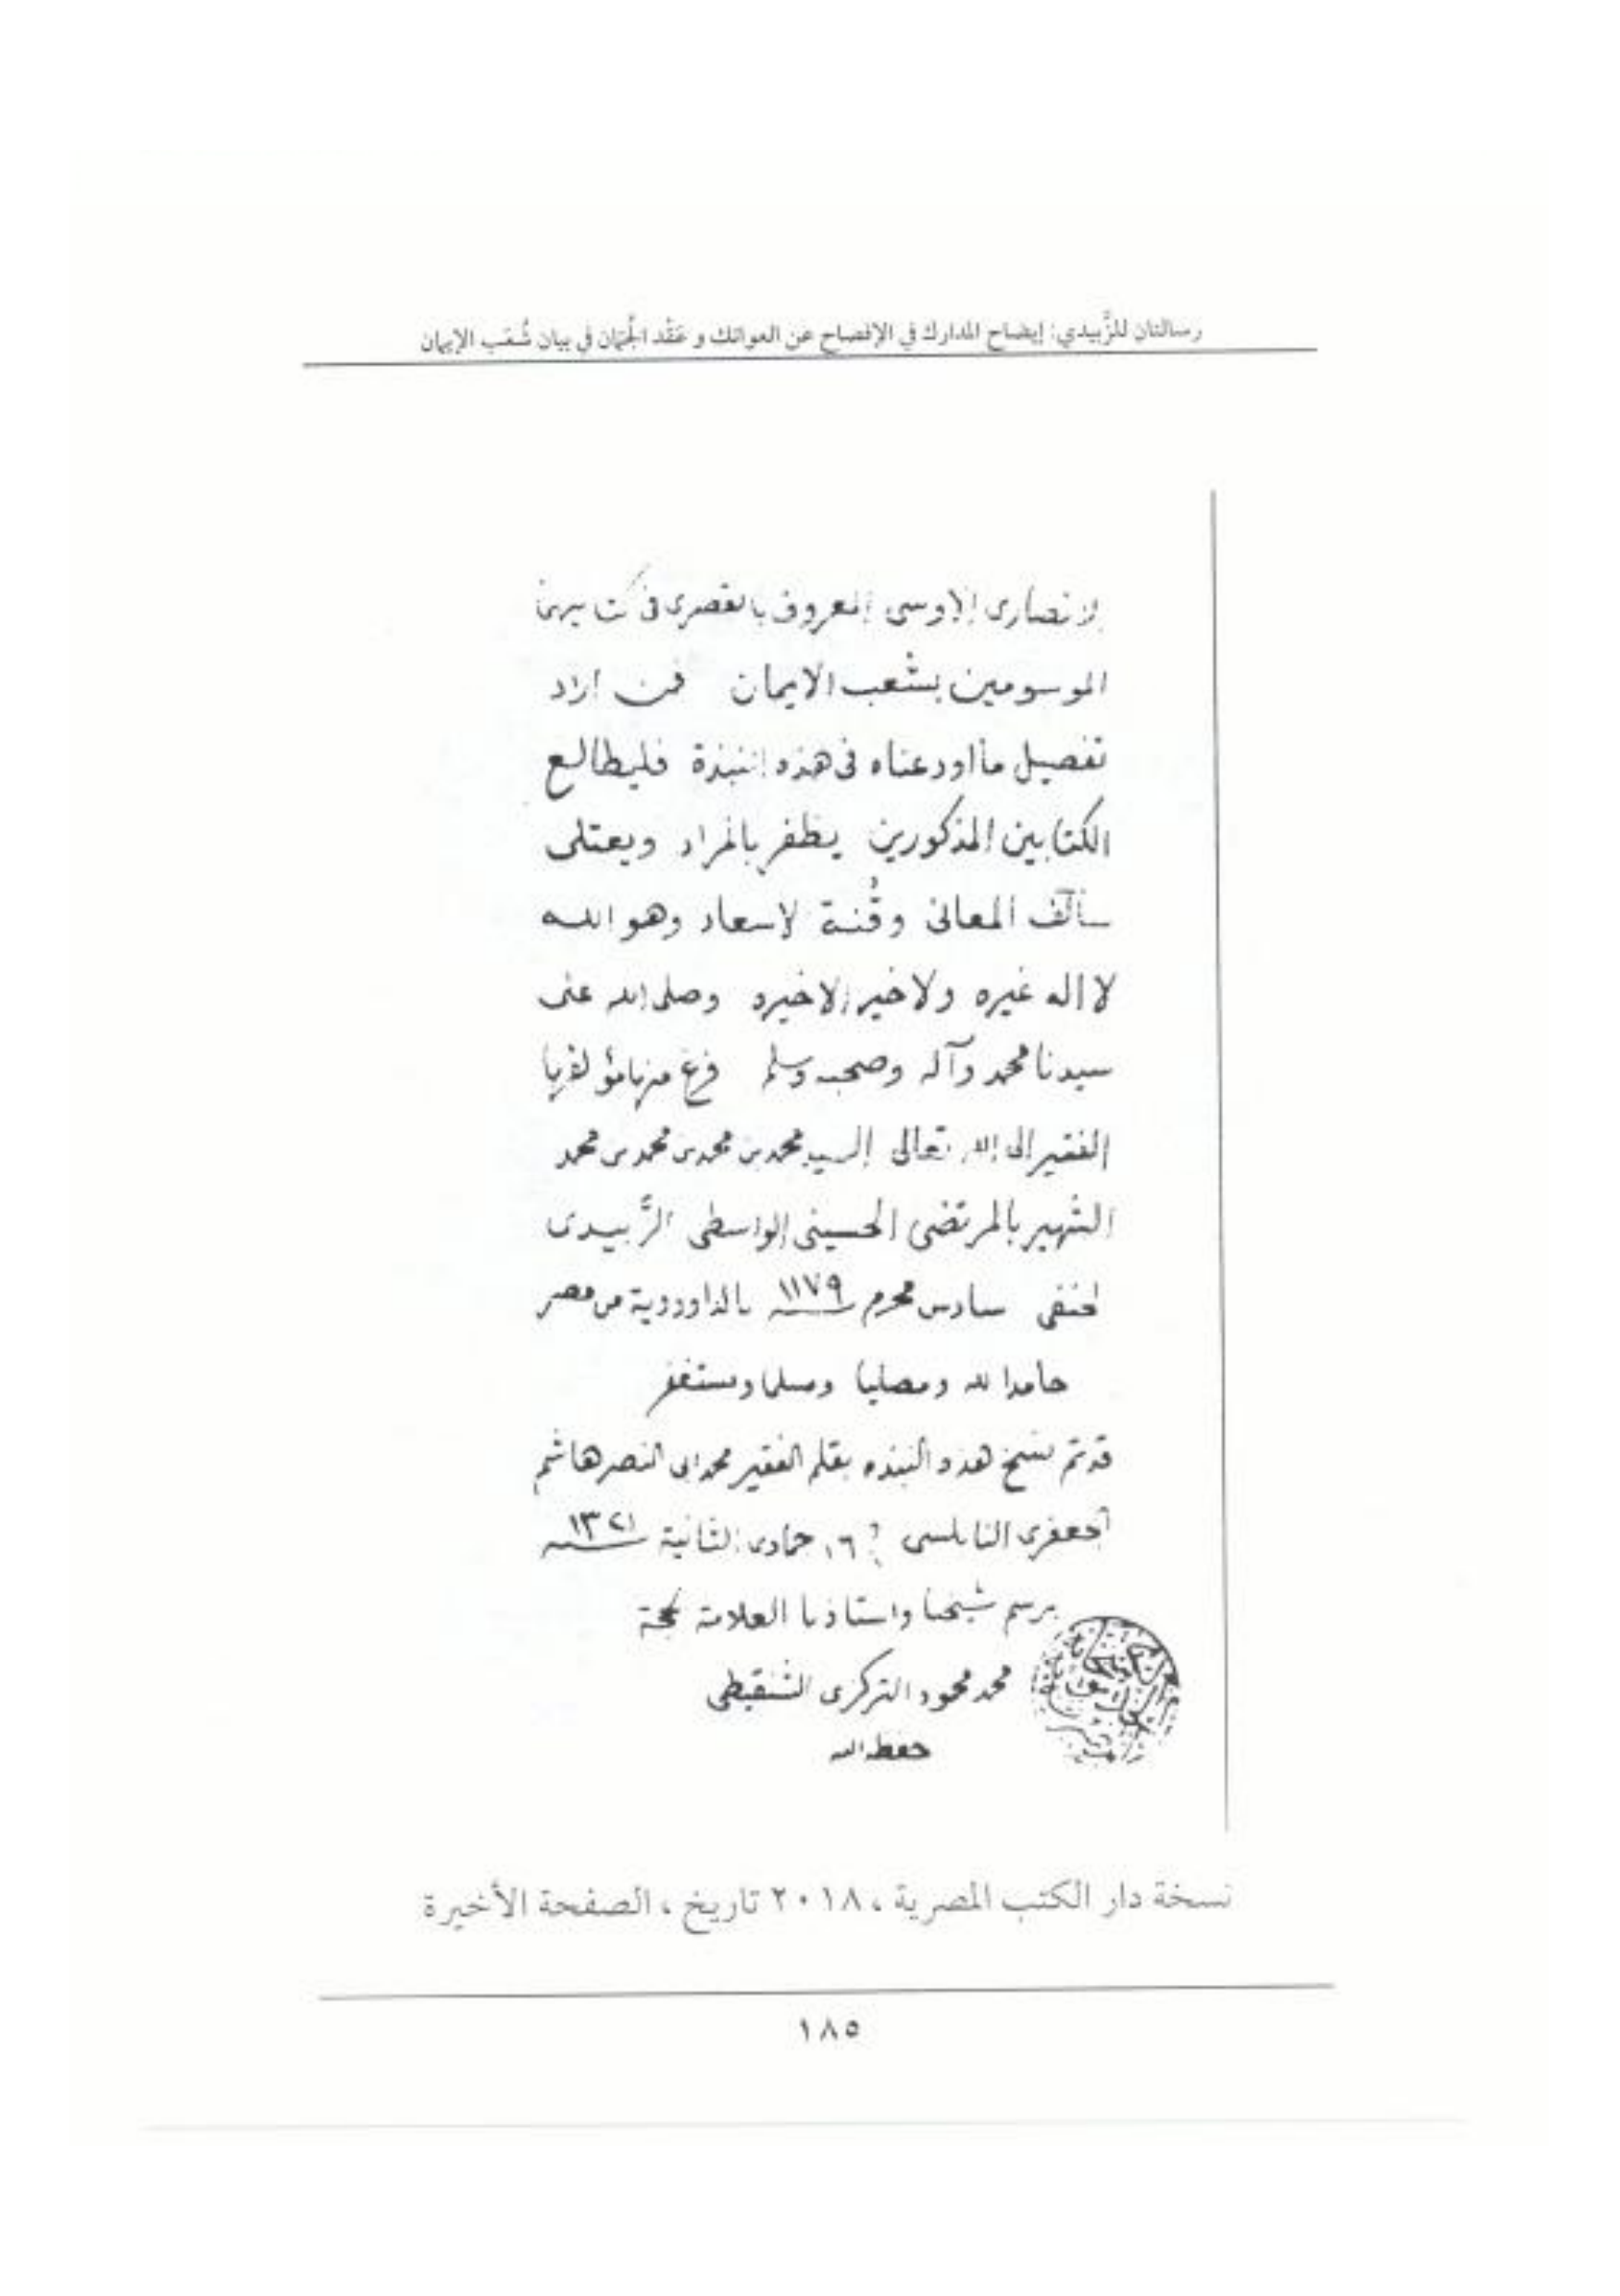 رسالتان للزَّبيدي: إيضاح المدارك في الإفصاح عن العواتك و عَقْد الجُمَان في بيان شُعَب الإيمان
الانصارى الاوسى المعروف بالقصرى فى كتابيهما
الموسومين بشعب الايمان فمن اراد
تفصيل ما اودعناه فى هذه النبذة فليطالع
الكتابين المذكورين يظفر بالمراد ويعتلى
المعانى وقُنة الاسعاد وهو الله
لا اله غيره ولا خير الا خيره وصلى الله على
سيدنا محمد وآله وصحبه وسلم فرغ منها مؤلفها
الفقير الى الله تعالى السيد محمد بن محمد بن محمد بن محمد
الشهير بالمرتضى الحسينى الواسطى الزَّبيدى
الحنفى سادس محرم سنة ١١٧٩ بالداوودية من مصر
حامدا لله ومصليا ومسلما ومستغفر
قد تم نسخ هذه النبذه بقلم الفقير محمد ابى النصر هاشم
الجعفرى النابلسى ١٦ جمادى الثانية سنة ١٣٢١
برسم شيخنا واستاذنا العلامة الحجة
محمد محمود التركزى الشنقيطى
حفظه الله
نسخة دار الكتب المصرية ، ٢٠١٨ تاريخ ، الصفحة الأخيرة
١٨٥